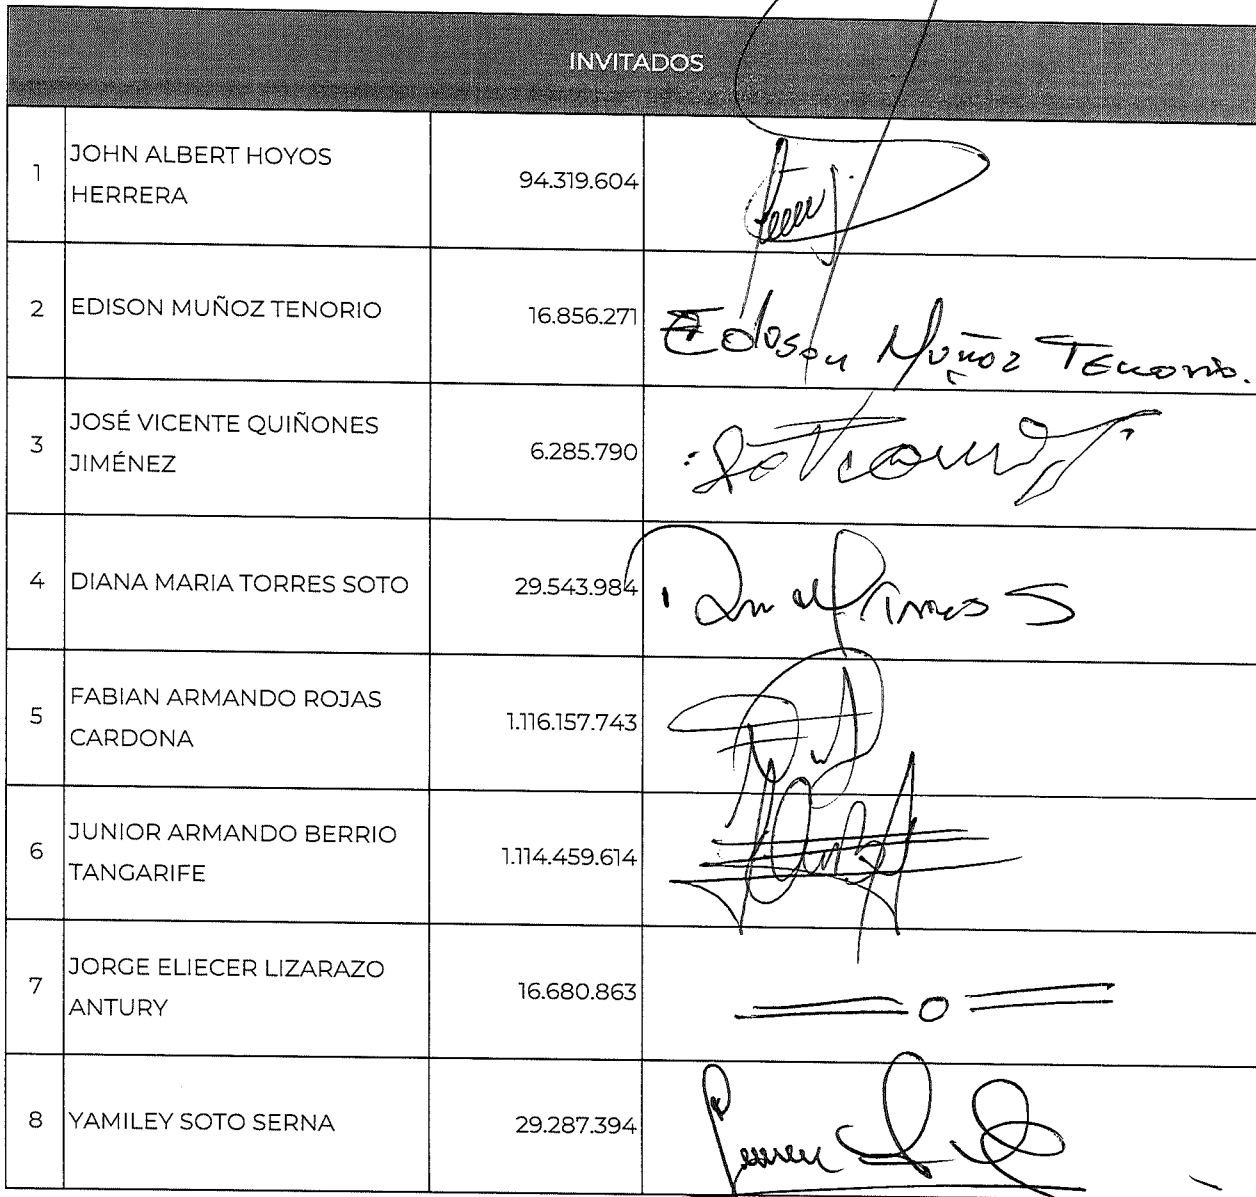 INVITADOS
1 JOHN ALBERT HOYOS HERRERA 94.319.604
2 EDISON MUÑOZ TENORIO 16.856.271 Edison Muñoz Tenorio.
3 JOSÉ VICENTE QUIÑONES JIMÉNEZ 6.285.790
4 DIANA MARIA TORRES SOTO 29.543.984
5 FABIAN ARMANDO ROJAS CARDONA 1.116.157.743
6 JUNIOR ARMANDO BERRIO TANGARIFE 1.114.459.614
7 JORGE ELIECER LIZARAZO ANTURY 16.680.863
8 YAMILEY SOTO SERNA 29.287.394